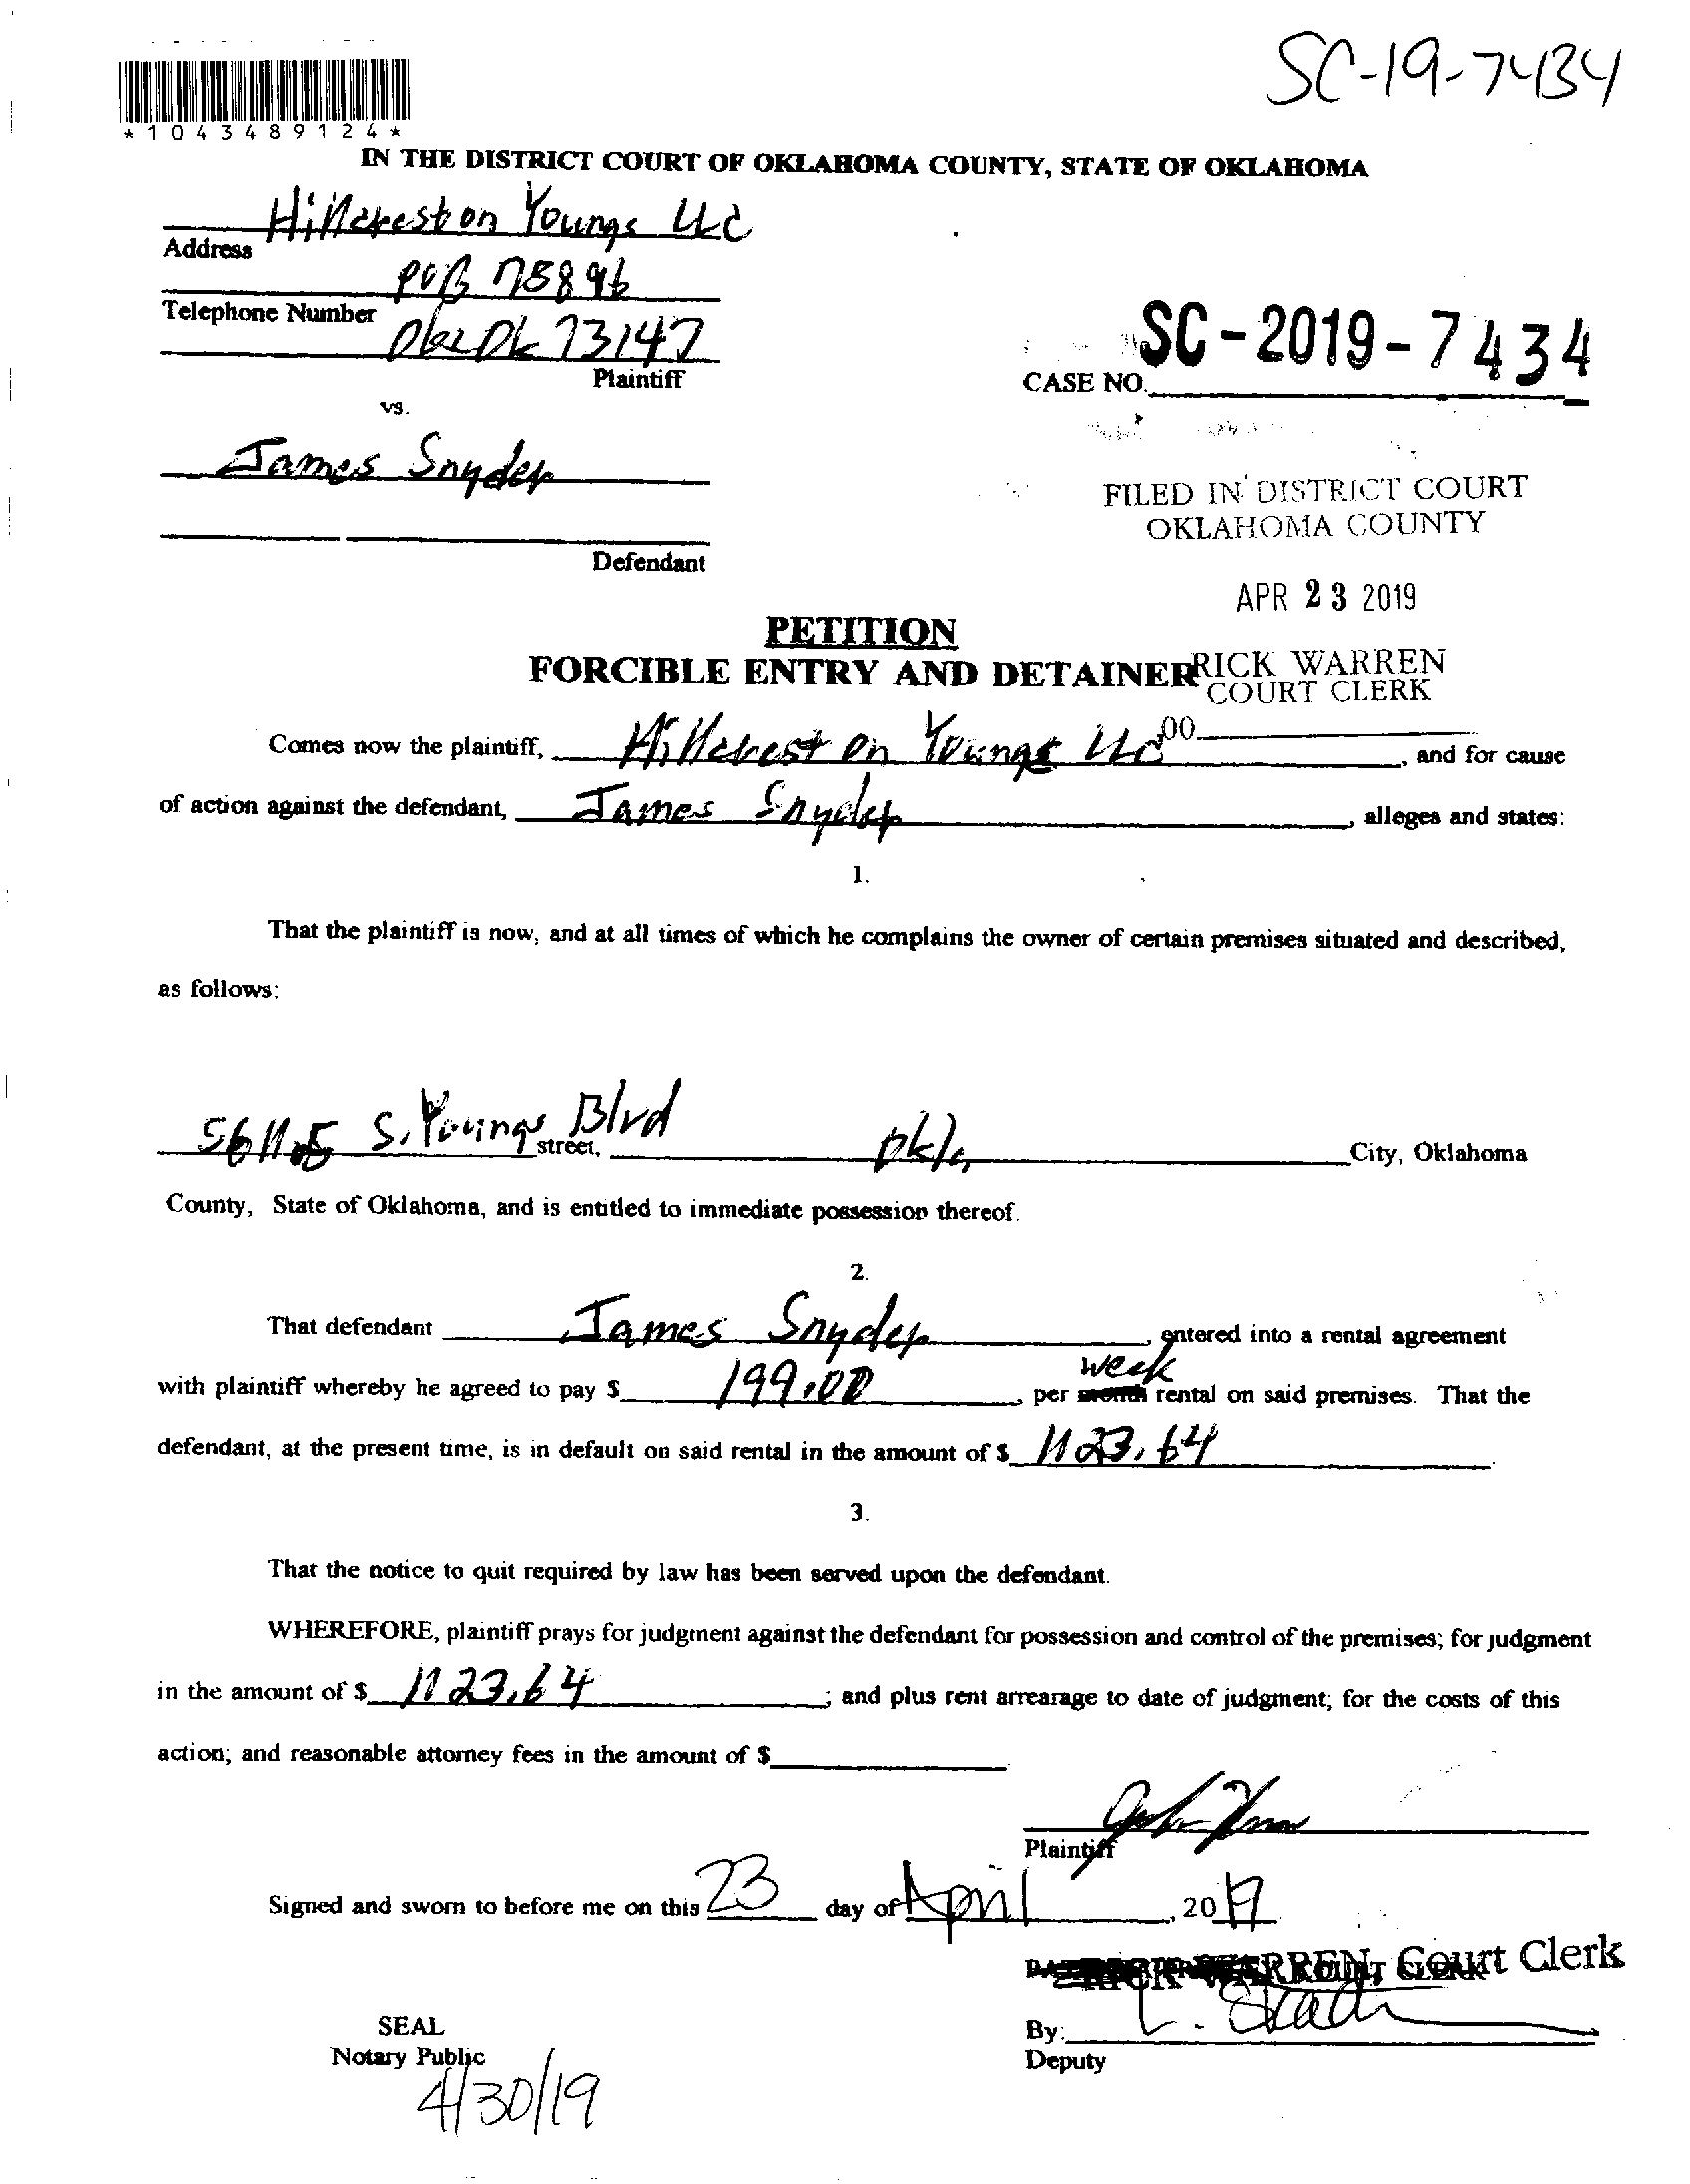 SC-19-7434
*1043489124*
IN THE DISTRICT COURT OF OKLAHOMA COUNTY, STATE OF OKLAHOMA
Hillcrest on Youngs LLC
Address
POB 75896
Telephone Number
Okc Ok 73147
Plaintiff
SC-2019-7434
CASE NO.
vs.
James Snyder
FILED IN DISTRICT COURT
OKLAHOMA COUNTY
Defendant
APR 23 2019
PETITION
FORCIBLE ENTRY AND DETAINER
RICK WARREN
COURT CLERK
Comes now the plaintiff, Hillcrest on Youngs LLC 00 , and for cause
of action against the defendant, James Snyder , alleges and states:
1.
That the plaintiff is now, and at all times of which he complains the owner of certain premises situated and described,
as follows:
S. Youngs Blvd street, Okla City, Oklahoma
County, State of Oklahoma, and is entitled to immediate possession thereof.
2.
That defendant James Snyder , entered into a rental agreement
week
with plaintiff whereby he agreed to pay $ 199.00 , per month rental on said premises. That the
defendant, at the present time, is in default on said rental in the amount of $ 1123.64 .
3.
That the notice to quit required by law has been served upon the defendant.
WHEREFORE, plaintiff prays for judgment against the defendant for possession and control of the premises; for judgment
in the amount of $ 1123.64 ; and plus rent arrearage to date of judgment; for the costs of this
action; and reasonable attorney fees in the amount of $
Plaintiff
Signed and sworn to before me on this 23 day of April , 2019
RICK WARREN, Court Clerk
SEAL
By:
Notary Public
Deputy
4/30/19